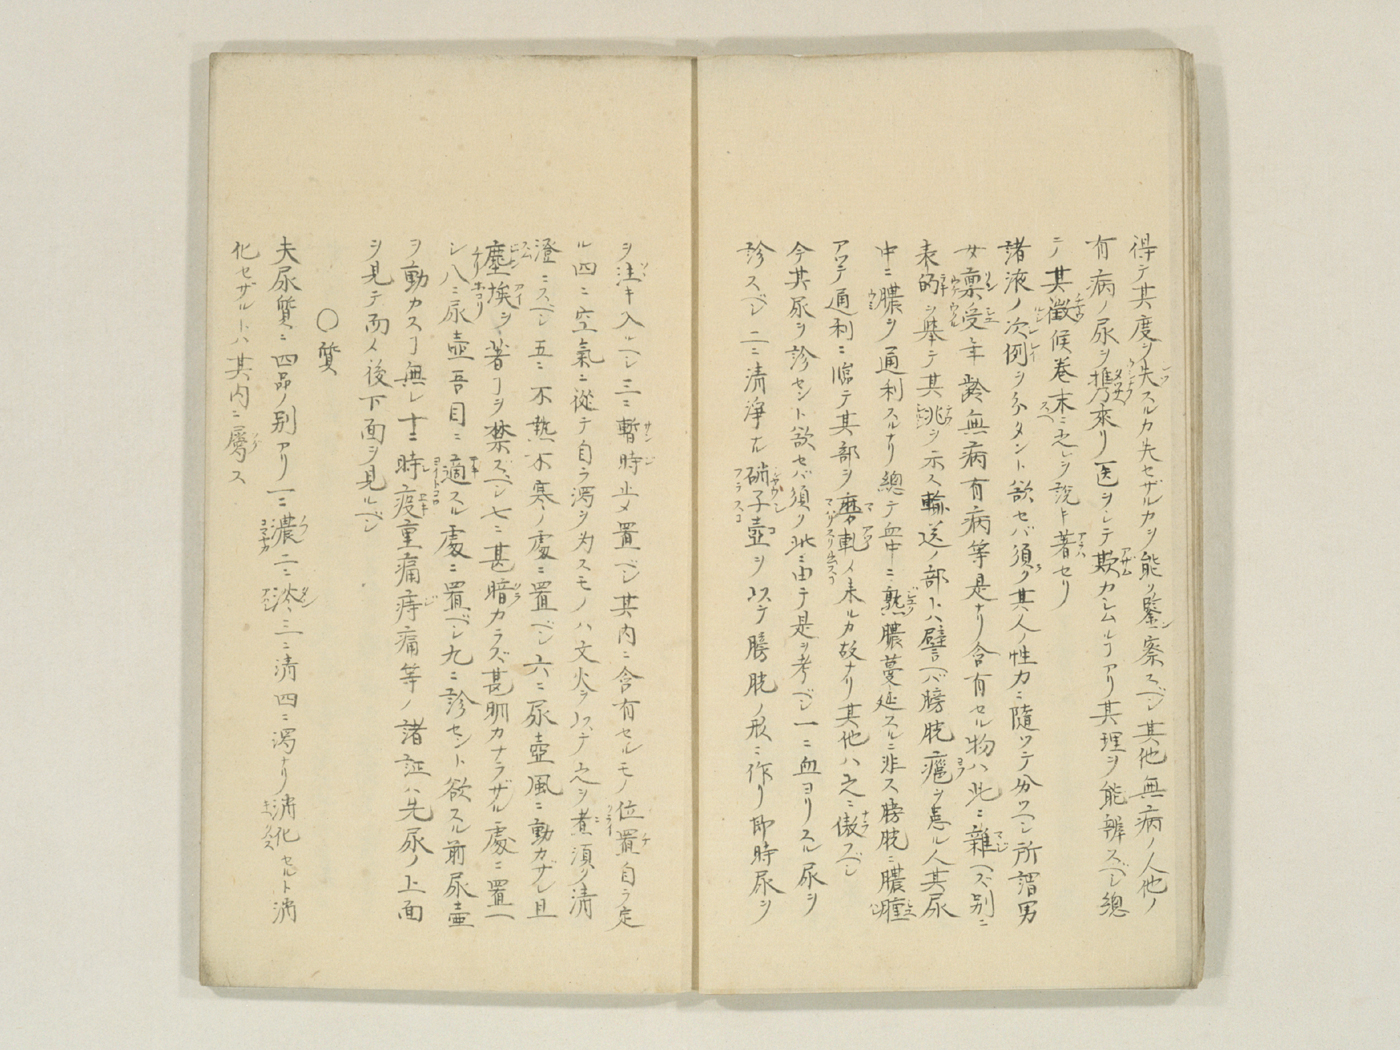 得テ其度ヲ失スルカ失セザルカヲ能ク鑒察スベシ其他無病ノ人他ノ
有病ノ尿ヲ携來リ医ヲシテ欺カシムルヿアリ其理ヲ能辨スベシ總
テ其徴候巻末ニ之レヲ説キ著セリ
諸液ノ次例ヲ分タント欲セバ須ク其人ノ性力ニ隨ツテ分ツベシ所謂男
女禀受年齡無病有病等是ナリ含有セル物ハ此ニ雜ヘズ別ニ
表的ヲ挙テ其兆ヲ示ス輸送ノ部トハ譬ヘバ膀胱瘍ヲ患ル人其尿
中ニ膿ヲ通利スルナリ總テ血中ニ熟膿蔓延スルニ非ス膀胱ニ膿腫
アツテ通利ニ臨テ其部ヲ磨軋〆来ルカ故ナリ其他ハ之ニ傲フベシ
今其尿ヲ診セント欲セバ須ク此ニ由テ是ヲ考ベシ一ニ血ヨリスル尿ヲ
診スベシ二ニ清浄ナル硝子壺ヲ以テ膀胱ノ形ニ作リ即時尿ヲ
ヲ注キ入ルベシ三ニ暫時止メ置ベシ其内ニ含有セルモノ位置自ラ定
ル四ニ空氣ニ從テ自ラ濁ヲ为スモノハ文火ヲ以テ之ヲ煮須ク清
澄ニスベシ五ニ不熱不寒ノ處ニ置ベシ六ニ尿壺風ニ動カザレ且
塵埃ヲ著ヿヲ禁ズベシ七ニ甚暗カラズ甚明カナラザル處ニ置ベ
シ八ニ尿壺吾目ニ適スル處ニ置ベシ九ニ診セント欲スル前尿壺
ヲ動カスヿ無レ十ニ時疫重痛痔痛等ノ諸証ハ先尿ノ上面
ヲ見テ而〆後下面ヲ見ルベシ
〇質
夫尿質ニ四品ノ別アリ一ニ濃二ニ淡三ニ清四ニ濁ナリ消化セルト消
化セザルトハ其内ニ屬ス